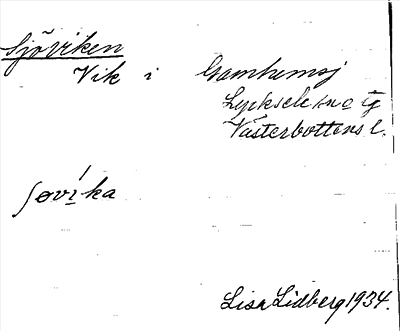 Sjöviken
Vik i Gamhemsj
Lycksele sn o tg
Västerbottens l.
ʃøvíka
Lisa Lidberg 1934.